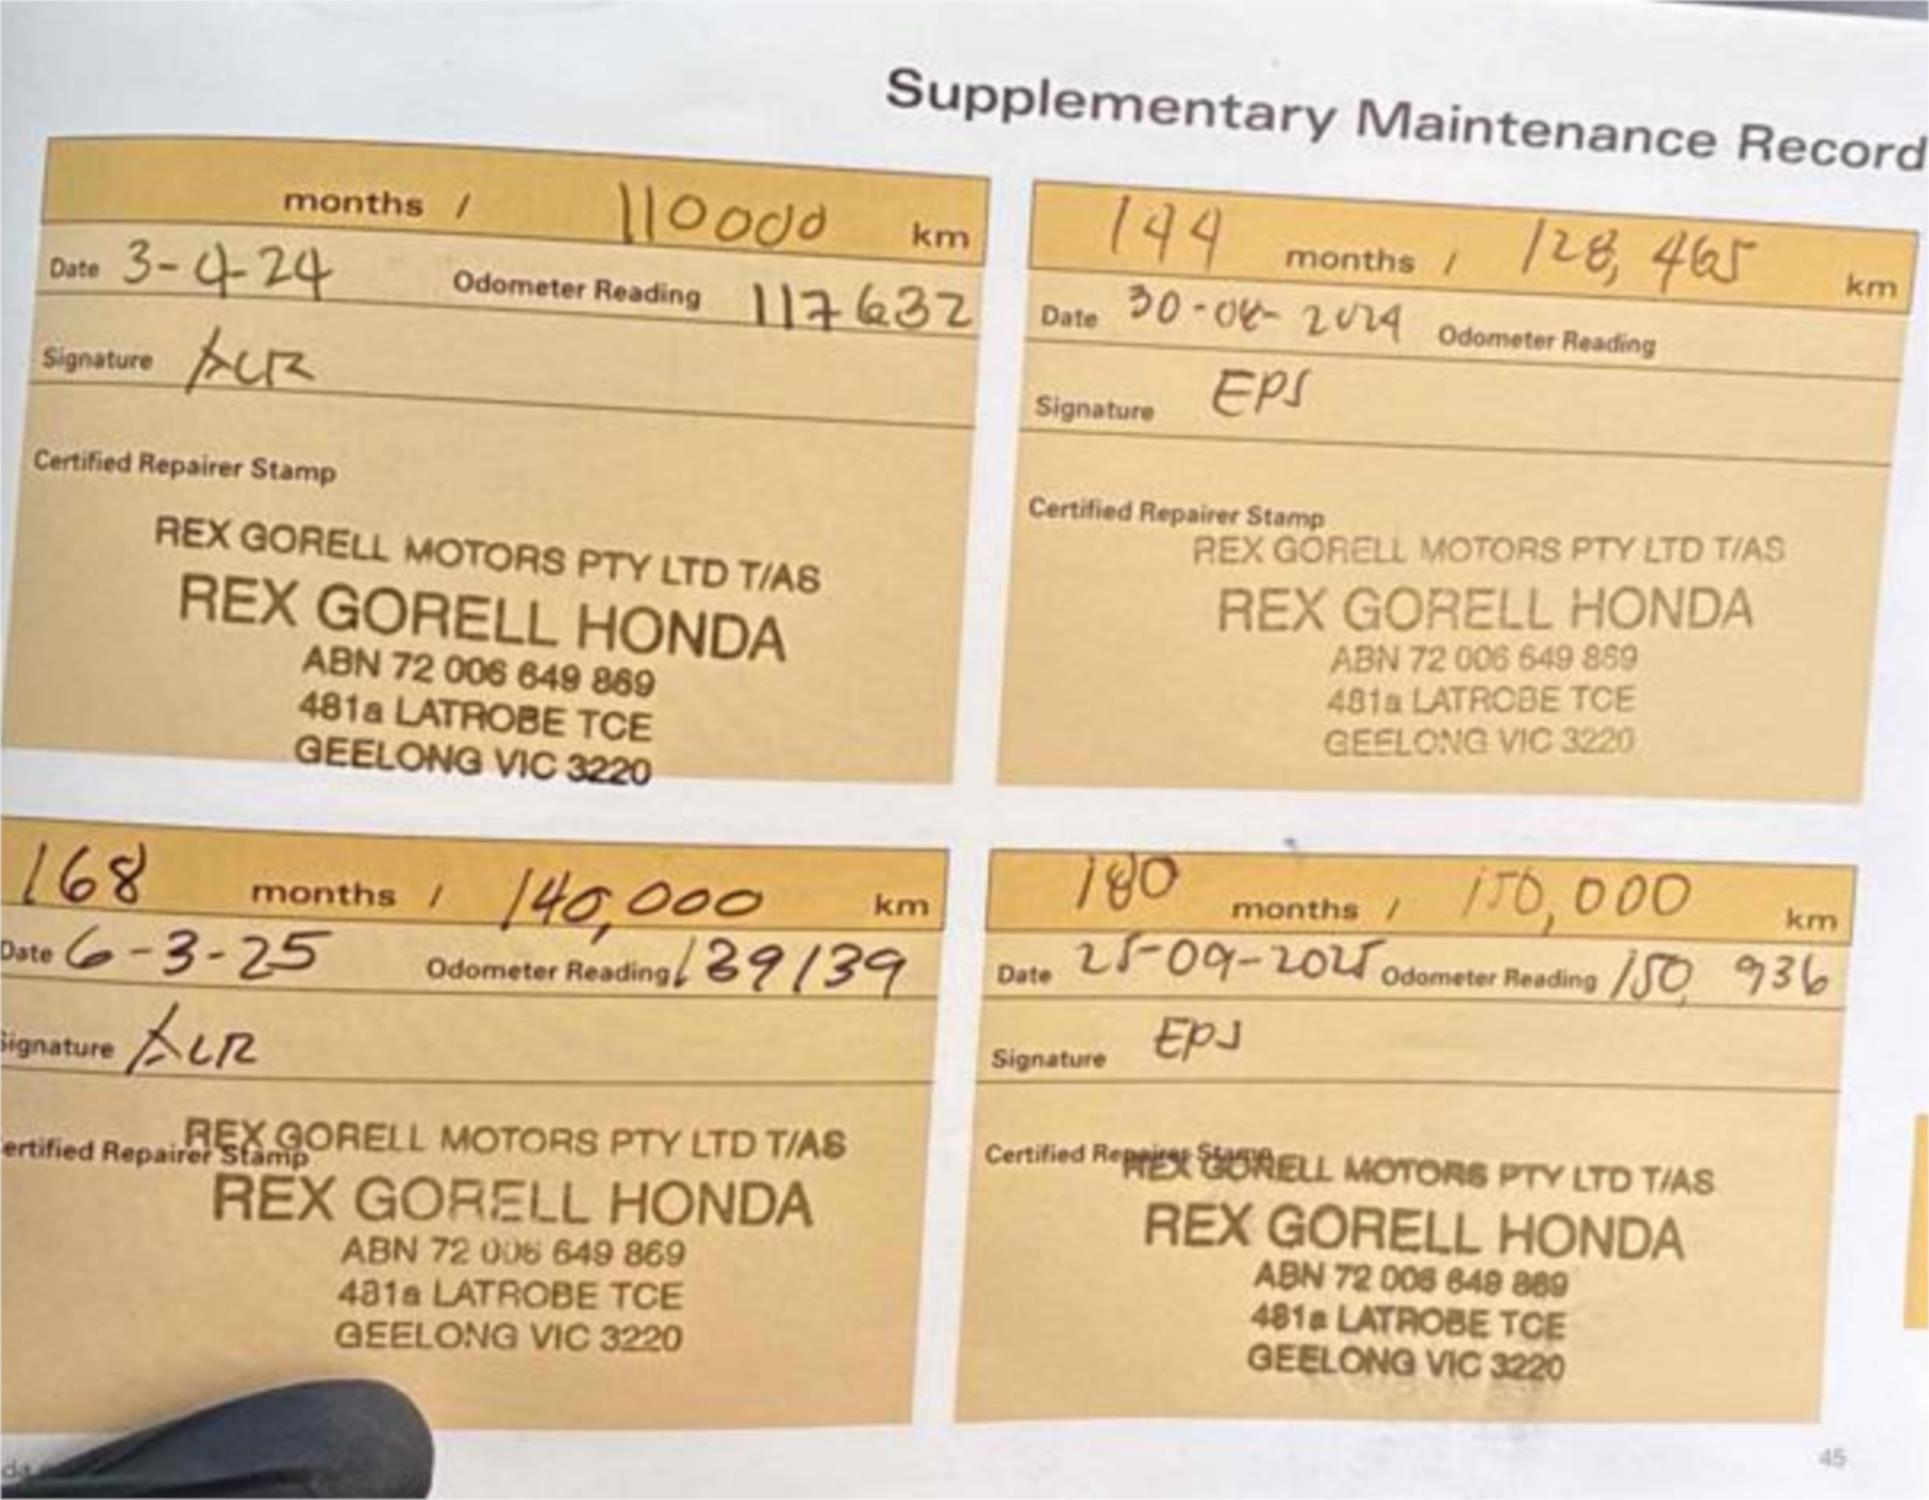 Supplementary Maintenance Record
months / 110000 km
Date 3-4-24 Odometer Reading 117632
Signature ALR
Certified Repairer Stamp
REX GORELL MOTORS PTY LTD T/AS
REX GORELL HONDA
ABN 72 006 649 869
481a LATROBE TCE
GEELONG VIC 3220
144 months / 128,465 km
Date 30-08-2024 Odometer Reading
Signature EPS
Certified Repairer Stamp
REX GORELL MOTORS PTY LTD T/AS
REX GORELL HONDA
ABN 72 006 649 869
481a LATROBE TCE
GEELONG VIC 3220
168 months / 140,000 km
Date 6-3-25 Odometer Reading 139139
ignature ALR
ertified Repairer Stamp
REX GORELL MOTORS PTY LTD T/AS
REX GORELL HONDA
ABN 72 006 649 869
481a LATROBE TCE
GEELONG VIC 3220
180 months / 150,000 km
Date 25-09-2025 Odometer Reading 150,936
Signature EPS
Certified Repairer Stamp
REX GORELL MOTORS PTY LTD T/AS
REX GORELL HONDA
ABN 72 006 649 869
481a LATROBE TCE
GEELONG VIC 3220
45